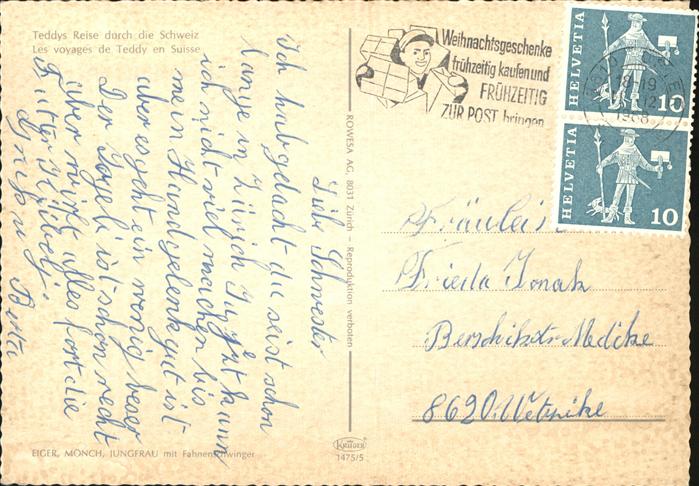 Teddys Reise durch die Schweiz
Les voyages de Teddy en Suisse
Lieb Schwester
Ich hab gedacht du seist schon
lange in Zürich Ja jetzt kann
ich nicht viel machen bis
mein Handgelenk gut ist
aber es geht ein wenig besser
Der Jogeli ist schon recht
über nacht alles fort die
Futter
Grüße Berta
EIGER, MÖNCH, JUNGFRAU mit Fahnenschwinger
ROWESA AG, 8031 Zürich – Reproduktion verboten
KRÜGER
1475/5
Weihnachtsgeschenke
frühzeitig kaufen und
FRÜHZEITIG
ZUR POST bringen
18-19
12
1968
HELVETIA 10
HELVETIA 10
Fräulein
Frieda Jonak
8620 Wetzike